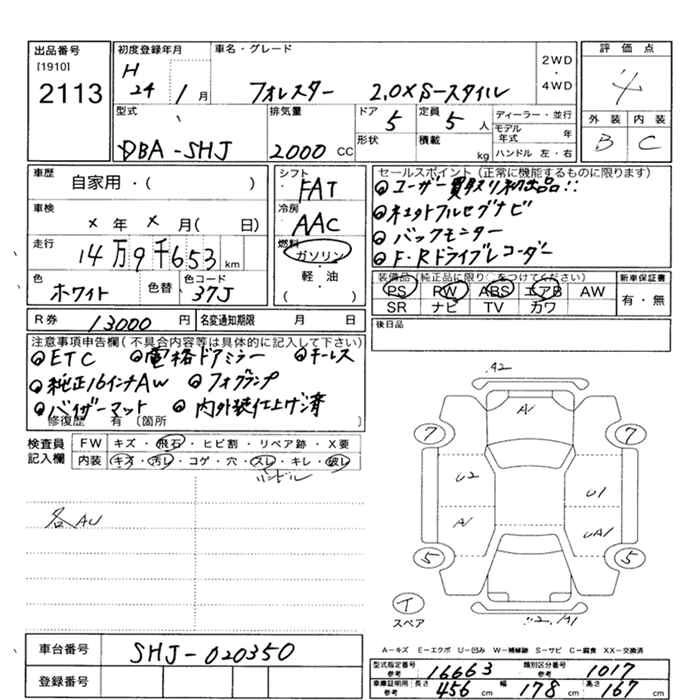 出品番号 初度登録年月 車名・グレード 2WD・4WD 評価点
[1910]
2113 H24 1月 フォレスター 2.0XSースタイル 4
型式 排気量 ドア 定員 ディーラー・並行 外装 内装
DBA-SHJ 2000 CC 5 5人 モデル年式 年 B C
形状 積載 kg ハンドル 左・右
車歴 自家用・( ) シフト FAT
セールスポイント(正常に機能するものに限ります)
◎ユーザー買取り初出品!!
車検 ×年 ×月( 日) 冷房 AAC
◎キェウトフルセグナビ
走行 14万9千653 km 燃料 ガソリン・軽・油 ( )
◎バックモニター
◎F・Rドライブレコーダー
色 ホワイト 色替 色コード 37J
装備品(純正品に限り○をつけてください) 新車保証書
PS RW ABS エアB AW 有・無
SR ナビ TV カワ
R券 13000円 名変通知期限 月 日
後日品
注意事項申告欄(不具合内容等は具体的に記入して下さい)
◎ETC ◎電格ドアミラー ◎キーレス
◎純正16インチAW ◎フォグランプ
◎バイザーマット ◎内外装仕上げ済
修復歴 有 〔箇所 〕
検査員記入欄 FW キズ・飛石・ヒビ割・リペア跡・X要
内装 キズ・汚レ・コゲ・穴・スレ・キレ・破レ
ハンドル
各AU
.42
A1
7 7
U2 U1
A1 UA1
5 5
イ
スペア
U2.A1
車台番号 SHJ-020350
登録番号
A-キズ E-エクボ U-凹み W-補修跡 S-サビ C-腐食 XX-交換済
型式指定番号 参考 16663 類別区分番号 参考 1017
車庫証明用 参考 長さ 456 cm 幅 178 cm 高さ 167 cm